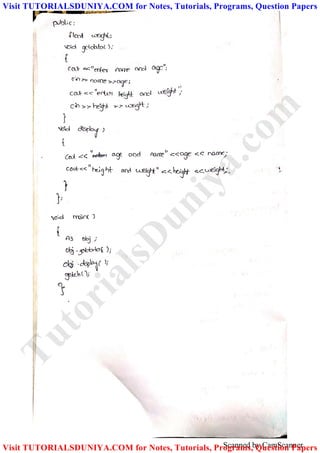 Visit TUTORIALSDUNIYA.COM for Notes, Tutorials, Programs, Question Papers
public:
float weight;
void getdata( );
{
cout <<"enter name and age";
cin>> name >>age;
cout << "enter height and weight";
cin >> height >> weight;
}
void display ;
{
cout << age and name" <<age << name;
cout<< "height and weight" << height << weight;
}
};
void main( )
{
A3 obj ;
obj .getdata( );
obj .display( );
getch( );
}
TutorialsDuniya.com
Scanned by CamScanner
Visit TUTORIALSDUNIYA.COM for Notes, Tutorials, Programs, Question Papers